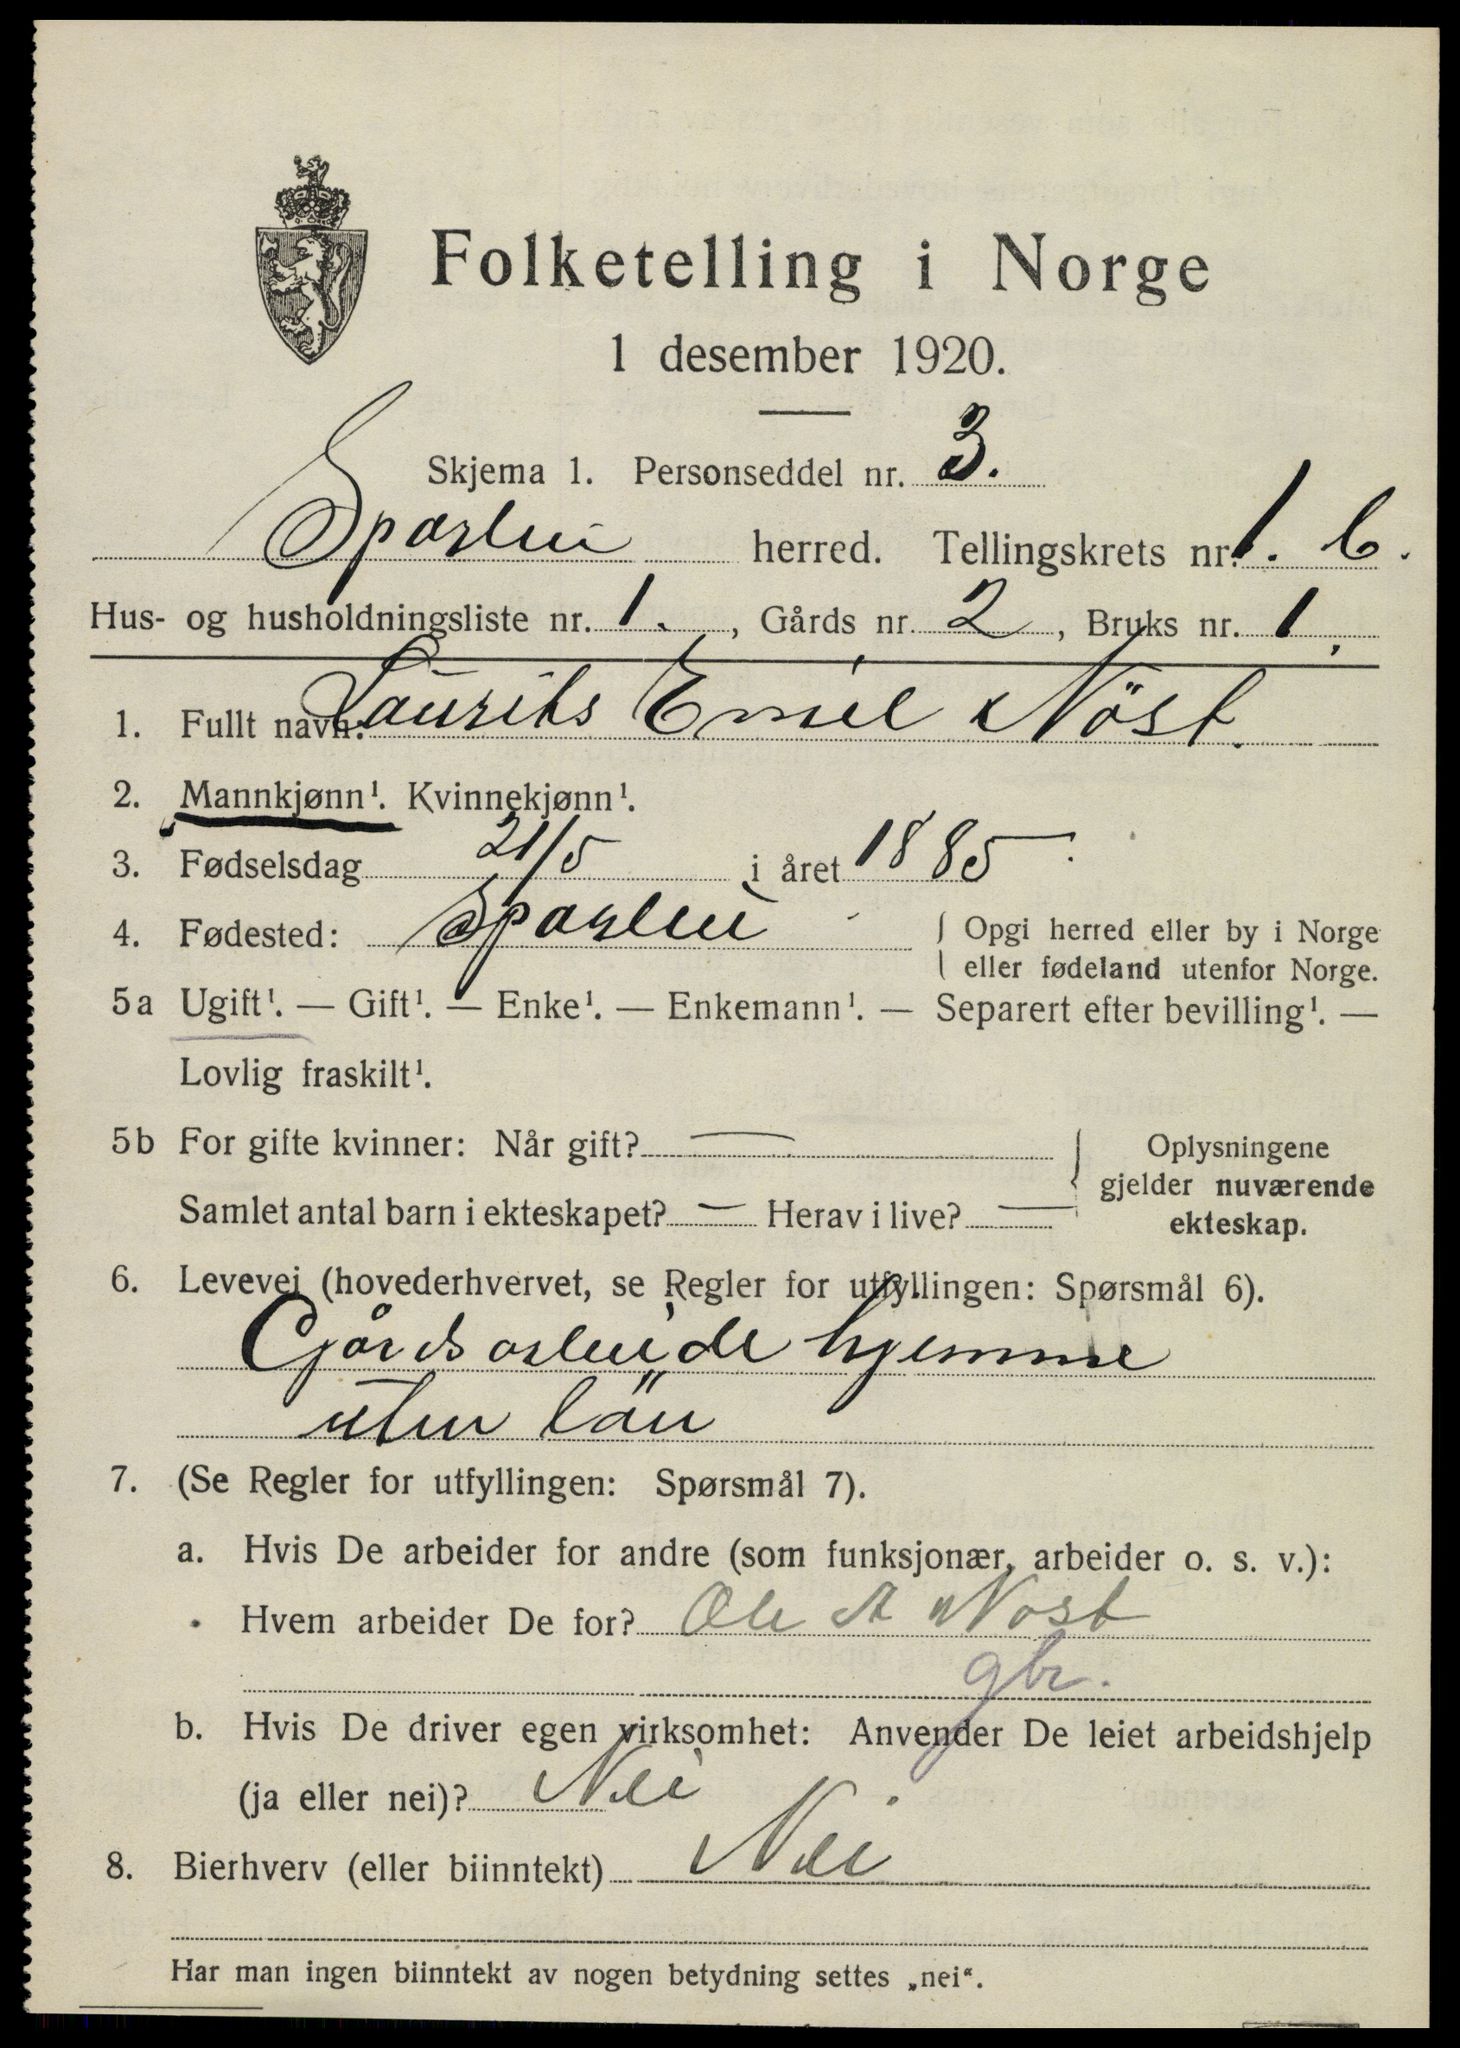 Folketelling i Norge
1 desember 1920.
Skjema 1. Personseddel nr. 3.
Sparbu herred. Tellingskrets nr. 1. C.
Hus- og husholdningsliste nr. 1., Gårds nr. 2, Bruks nr. 1.
1. Fullt navn: Laurits Emil Nöst.
2. Mannkjønn¹. Kvinnekjønn¹.
3. Fødselsdag 21/5 i året 1885.
4. Fødested: Sparbu { Opgi herred eller by i Norge
eller fødeland utenfor Norge.
5a Ugift¹. — Gift¹. — Enke¹. — Enkemann¹. — Separert efter bevilling¹. —
Lovlig fraskilt¹.
5b For gifte kvinner: Når gift? — } Oplysningene
gjelder nuværende
Samlet antal barn i ekteskapet? — Herav i live? — ekteskap.
6. Levevei (hovederhvervet, se Regler for utfyllingen: Spørsmål 6).
Gårdsarbeide hjemme
uten lön
7. (Se Regler for utfyllingen: Spørsmål 7).
a. Hvis De arbeider for andre (som funksjonær, arbeider o. s. v.):
Hvem arbeider De for? Ole A Nöst
gbr.
b. Hvis De driver egen virksomhet: Anvender De leiet arbeidshjelp
(ja eller nei)? Nei
8. Bierhverv (eller biinntekt) Nei
Har man ingen biinntekt av nogen betydning settes „nei“.